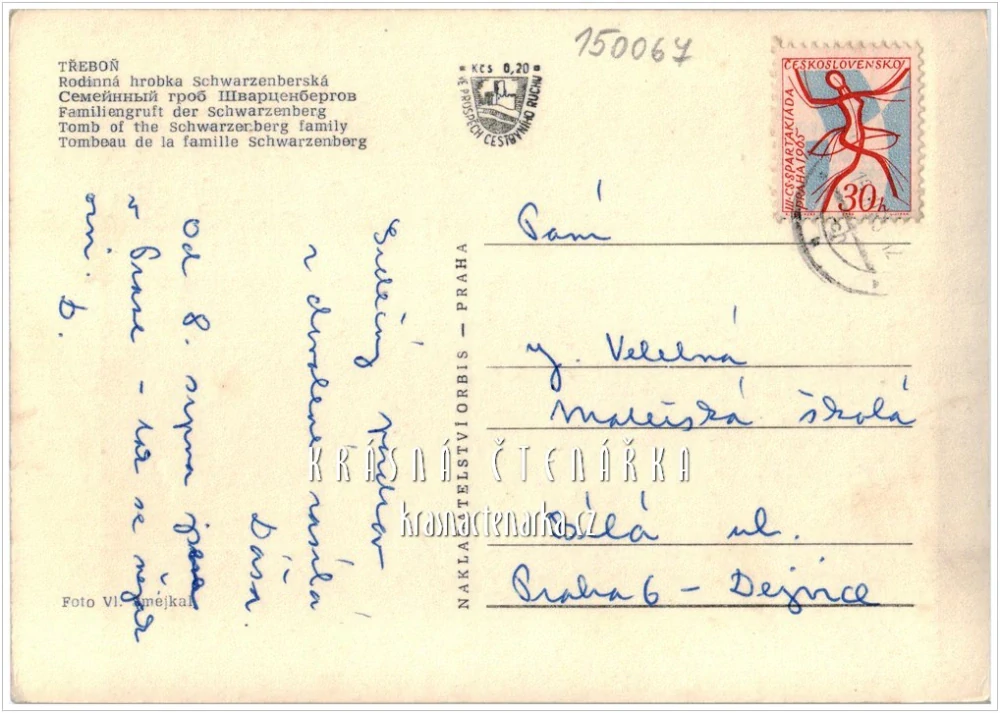 150067
TŘEBOŇ
Rodinná hrobka Schwarzenberská
Семейнный гроб Шварценбергов
Familiengruft der Schwarzenberg
Tomb of the Schwarzenberg family
Tombeau de la famille Schwarzenberg
KČS 0,20
VE PROSPĚCH CESTOVNÍHO RUCHU
ČESKOSLOVENSKO
III.CS.SPARTAKIÁDA
PRAHA 1965
30h
Srdečný pozdrav
z dovolené zasílá
Dáša.
Od 8. srpna jsem
v Praze - tak se někdy
ozvi. D.
NAKLADATELSTVÍ ORBIS — PRAHA
Paní
Mateřská škola
Bílá ul.
Praha 6 - Dejvice
KRÁSNÁ ČTENÁŘKA
krasnactenarka.cz
Foto Vl. Smejkal